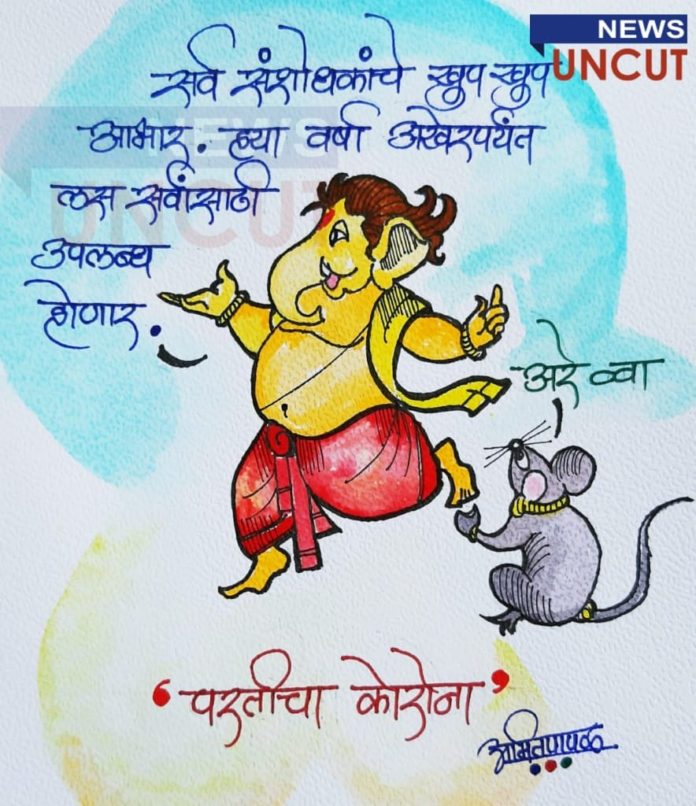 NEWS
UNCUT
सर्व संशोधकांचे खुप खुप
आभार. ह्या वर्षा अखेरपर्यंत
लस सर्वांसाठी
उपलब्ध
होणार.
अरे व्वा
'परतीचा कोरोना'
अमित पापळ